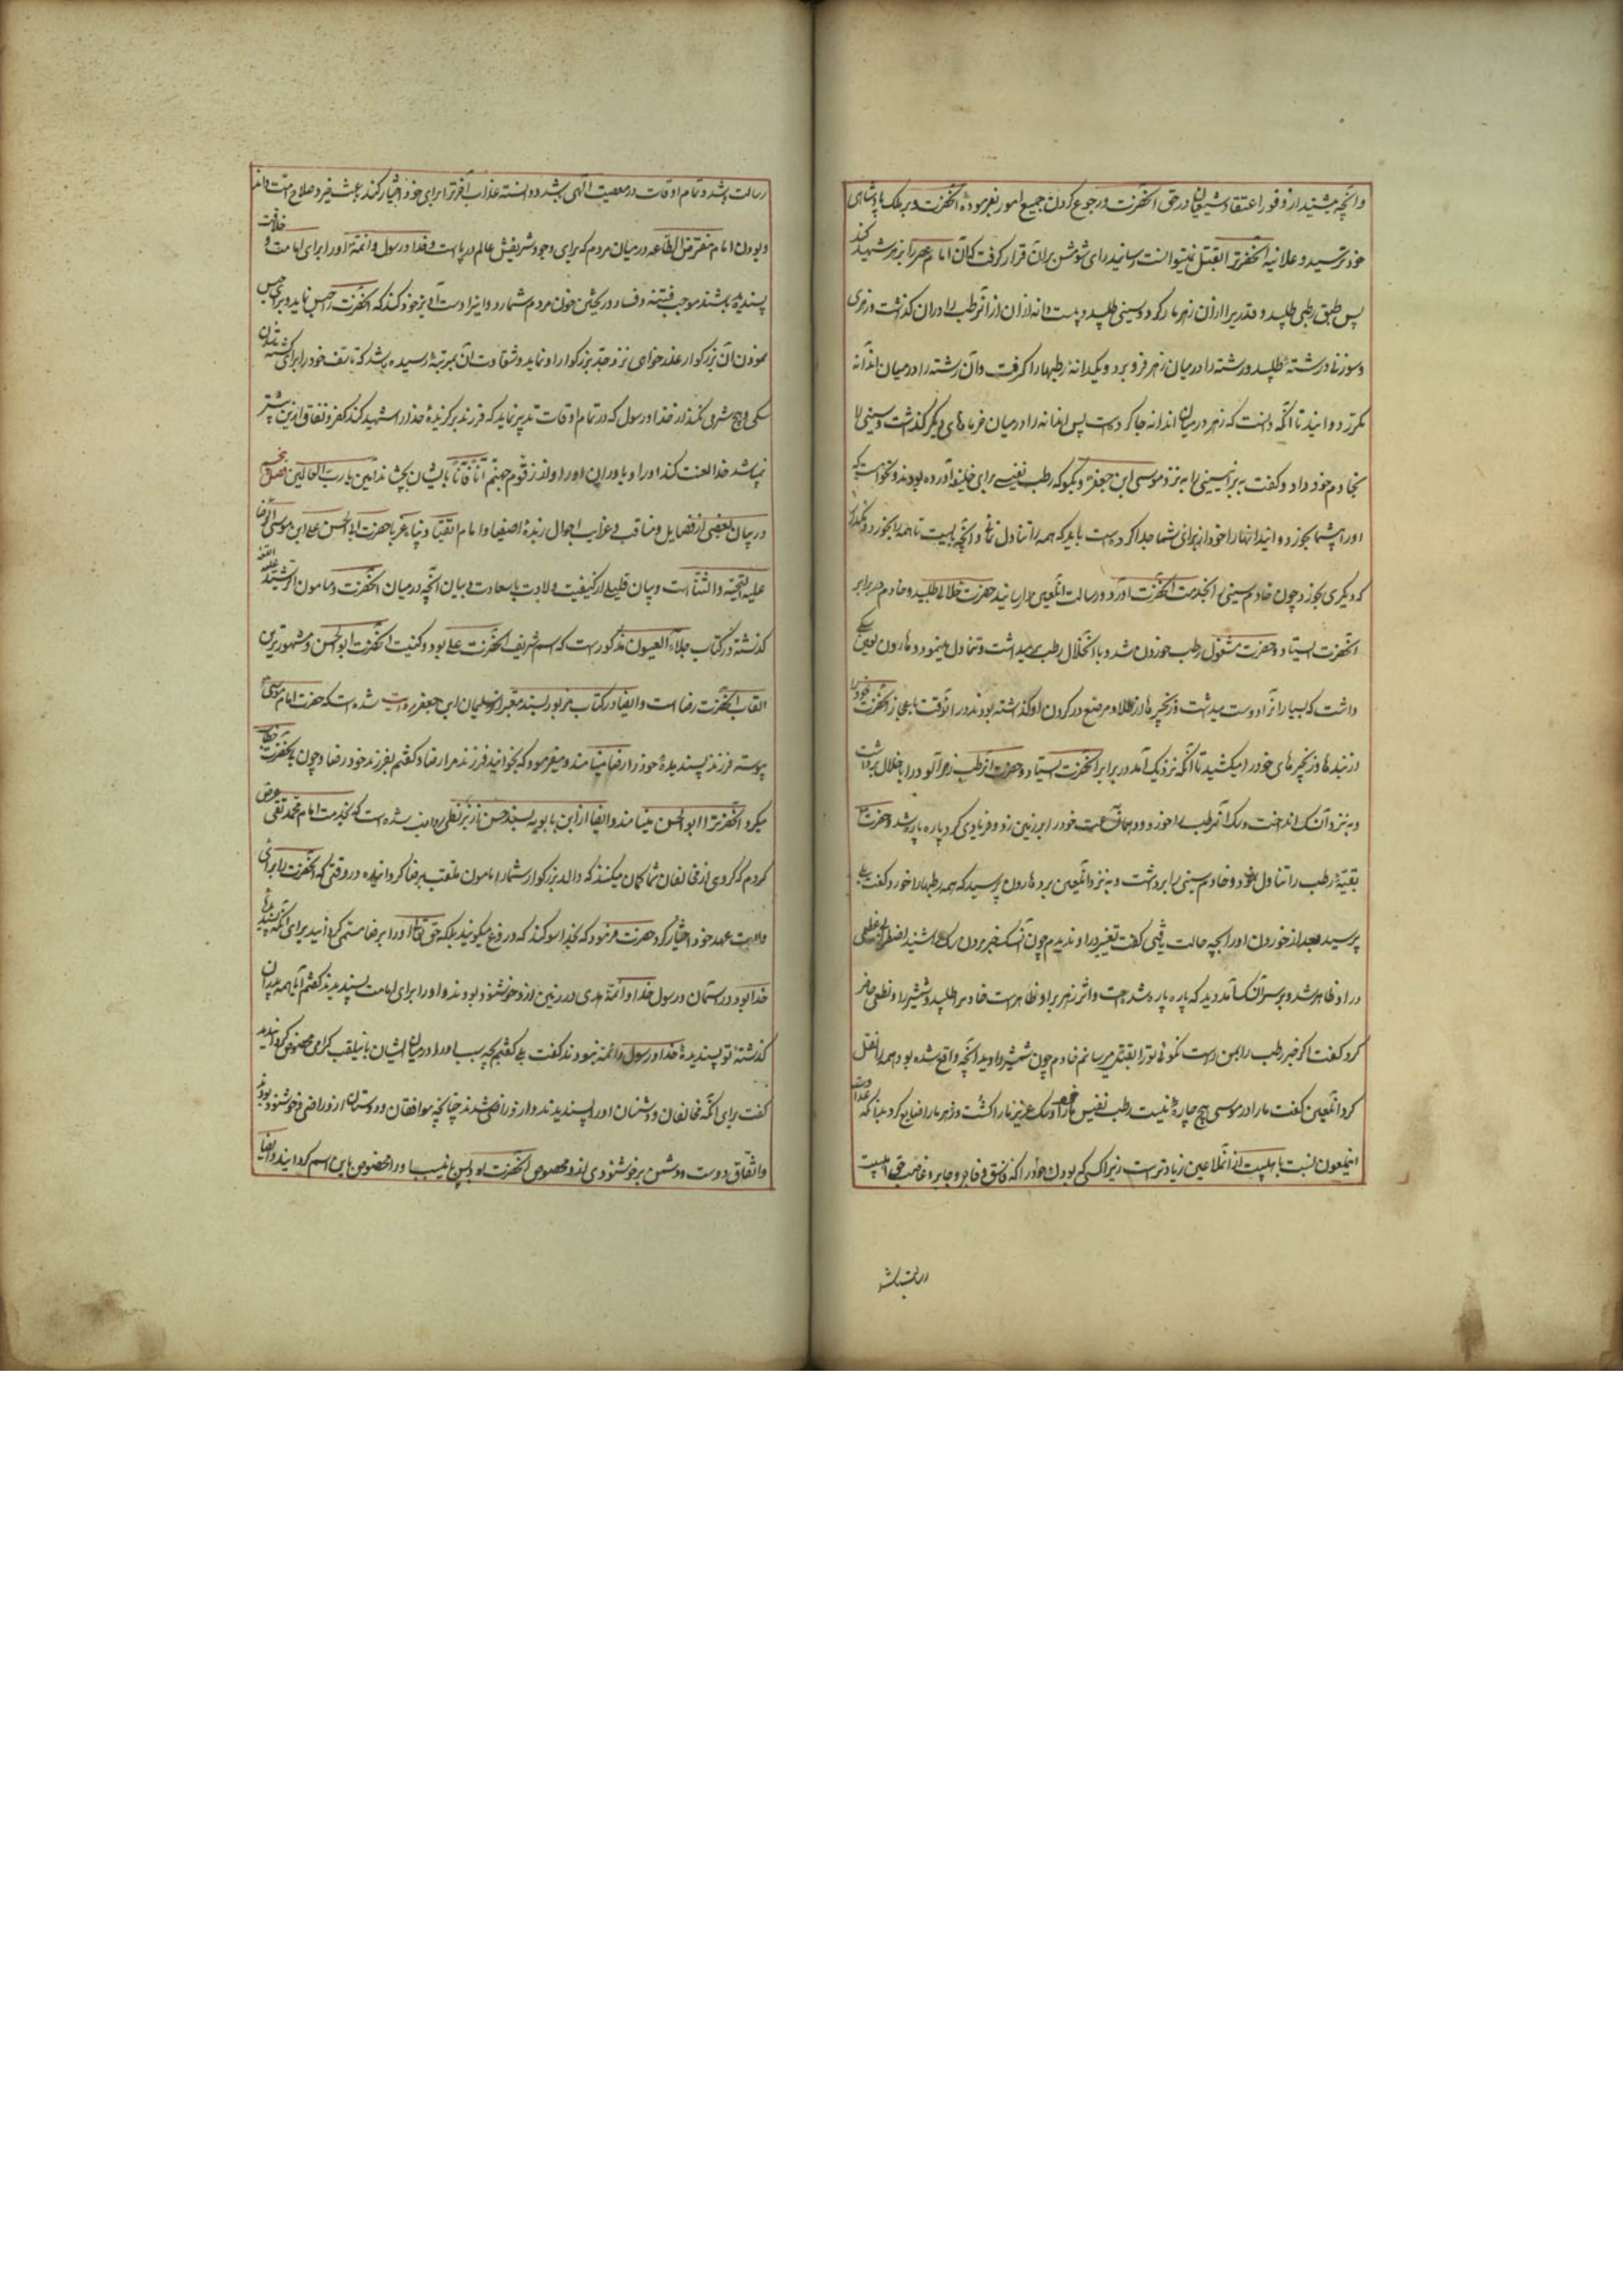 وانچه میشنید از وفور اعتقاد شیعیان در حق آنحضرت و رجوع کردن جمیع امور بفرموده آنحضرت و بر ملک پادشاهی
خود ترسید و علانیه آنحضرترا بقتل نمیتوانست رسانید رای شومش بران قرار گرفت که آن امام را بزهر شهید کند
پس طبق رطبی طلبید و قدریرا از ان زهر مار کرد و سینی طلبید و بیست دانه از ان رطب را دران گذاشت و
و سوزن و رشته طلبید و رشته را در میان زهر فرو برد و یکدانه رطبها را گرفت و آن رشته را در میان اندانه
مکرر دوانید تا آنکه دانست که زهر در میان اندانه جا کرده است پس اندانه را در میان خرماهای دیگر گذاشت و سینی را
بخادم خود داد و گفت ببر این سینی را به نزد موسی ابن جعفر و بگو که رطب نفیسی برای خلیفه آورده بودند و نخواست که
او را بیشما بخورد و اینها را خود از برای شما جدا کرده است باید که همه را تناول نمائی
که دیگری بخورد چون خادم سینی را بخدمت آنحضرت آورد و رسالت انلعین را رسانید حضرت خلالی طلبید و خادم در برابر
آنحضرت ایستاد و حضرت مشغول رطب خوردن شد و با انخلال رطب برمیداشت و تناول مینمود و هارون لعین سگی
داشت که بسیار انرا دوست میداشت و زنجیرها از طلا و مرصع در گردن او گذاشته بودند در انوقت باعجاز آنحضرت خود را
از بندها و زنجیرهای خود را میکشید تا آنکه نزدیک آمد و در برابر آنحضرت ایستاد و حضرت انرطب زهرآلود را بخلال برداشت
و به نزد آن سگ انداخت و سگ آنرطب را خورد و همان ساعت خود را بر زمین زد و فریادی کرد و پاره پاره شد و حضرت
بقیه رطب را تناول نمود و خادم سینی را برداشت و به نزد انلعین برد هارون پرسید که همه رطبها را خورد گفت بلی
پرسید بعد از خوردن او را بچه حالت یافتی گفت تغییر در او ندیدم چون خبر مردن سگ را شنید اضطراب عظیمی
در او ظاهر شد و بر سر آن سگ آمد دید که پاره پاره شده است و اثر زهر بر او ظاهر است خادم را طلبید و شمشیر و نطعی حاضر
کرد و گفت اگر خبر رطب را بمن راست نگوئی تو را بقتل میرسانم خادم چون شمشیر را دید انچه واقع شده بود همه را نقل
کرد انلعین گفت ما را در موسی هیچ چاره نیست رطب نفیس ما را خورد و سگ عزیز ما را کشت و زهر ما را ضایع کرد بدانکه عداوت
انملعون نسبت باهلبیت از انملاعین زیادتر است زیرا کسی که بودن خود را که فاسق و فاجر و جابر و غاصب حق اهلبیت
رسالت باشد و تمام اوقات در معصیت الهی باشد و دانسته عذاب آخرترا برای خود اختیار کند باعث خیر و صلاح امت داند
و بودن امام مفترض الطاعه در میان مردم که برای وجود شریفش عالم برپا است و خدا و رسول و ائمه او را برای امامت و خلافت
پسندیده باشند موجب فتنه و فساد و ریختن خون مردم شمارد و انرا دست آویز خود کند که آنحضرت را حبس نماید و برای حبس
نمودن آن بزرگوار عذرخواهی نزد جد بزرگوار او نماید و شقاوت آن بمرتبه رسیده باشد که تأسف خود را برای کشته شدن
سگی و هیچ شرمی نکند از خدا و رسول که در تمام اوقات تدبیر نماید که فرزند برگزیده خدا را شهید کند کفر و نفاق ازین بیشتر
نمیباشد خدا لعنت کند او را و یاوران او را و از زقوم جهنم آنا فآنا بایشان بچشاند آمین یا رب العالمین فصل پنجم
در بیان بعضی از فضایل و مناقب و غرایب احوال زبده اصفیا و امام اتقیا و پناه غربا حضرت ابا الحسن علی ابن موسی الرضا
علیه التحیة والثناست و بیان قلیلی از کیفیت ولادت باسعادت و بیان انچه در میان آنحضرت و مامون الرشید علیه اللعنه
گذشته در کتاب جلاء العیون مذکور است که اسم شریف آنحضرت علی بود و کنیت آنحضرت ابو الحسن و مشهورترین
القاب آنحضرت رضا است و ایضا در کتاب مزبور بسند معتبر از سلیمان ابن جعفر روایت شده است که حضرت امام موسی
پیوسته فرزند پسندیده خود را رضا مینامند و میفرمود که بخوانید فرزند مرا رضا و گفتم بفرزند خود رضا و چون بآنحضرت خطاب
میکرد آنحضرترا ابو الحسن مینامند و ایضا از ابن بابویه بسند حسن از بزنطی روایت شده است که بخدمت امام محمد تقی عرض
کردم که گروهی از مخالفان شما گمان میکنند که والد بزرگوار شما را مامون ملقب برضا گردانیده در وقتی که آنحضرت را برای
ولایت عهد خود اختیار کرد حضرت فرمود که بخدا سوگند که دروغ میگویند بلکه حق تعالی او را برضا مسمی گردانید برای آنکه پسندیده
خدا بود در آسمان و رسول خدا و ائمه هدی در زمین ازو خوشنود بودند و او را برای امامت پسندیدند گفتم آیا همه پدران
گذشته تو پسندیده خدا و رسول و ائمه نبودند گفت بلی گفتم بچه سبب او را در میان ایشان باینلقب گرامی مخصوص گردانیدند
گفت برای آنکه مخالفان و دشمنان او را پسندیدند و ازو راضی شدند چنانکه موافقان و دوستان ازو راضی و خوشنود بودند
و اتفاق دوست و دشمن بر خوشنودی ازو مخصوص آنحضرت بود پس باینسبب او را مخصوص باین اسم گردانیدند و ایضا